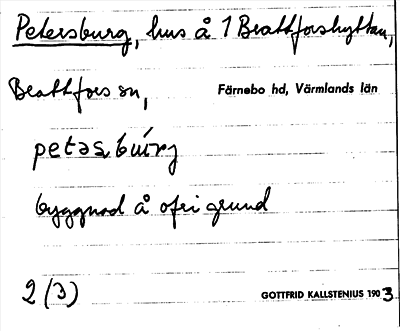 Petersburg, hus å 1 Brattforshyttan,
Brattfors sn,
Färnebo hd, Värmlands län
petəsbúrj
byggnad å ofri grund
2 (3)
GOTTFRID KALLSTENIUS 1903